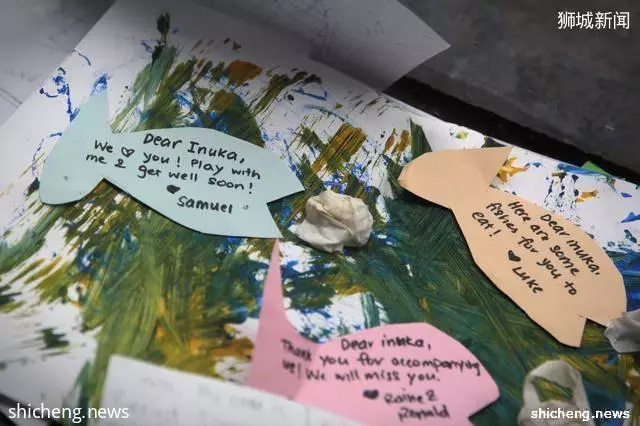 狮城新闻
Dear Inuka,
We ♡ you! Play with
me & get well soon!
♥ Samuel
Dear inuka,
Here are some
fishes for you to
eat!
♥ Luke
Dear inuka,
Thank you for accompanying
us! We will miss you.
♥ Raine &
Ronald
shicheng.news
shicheng.news